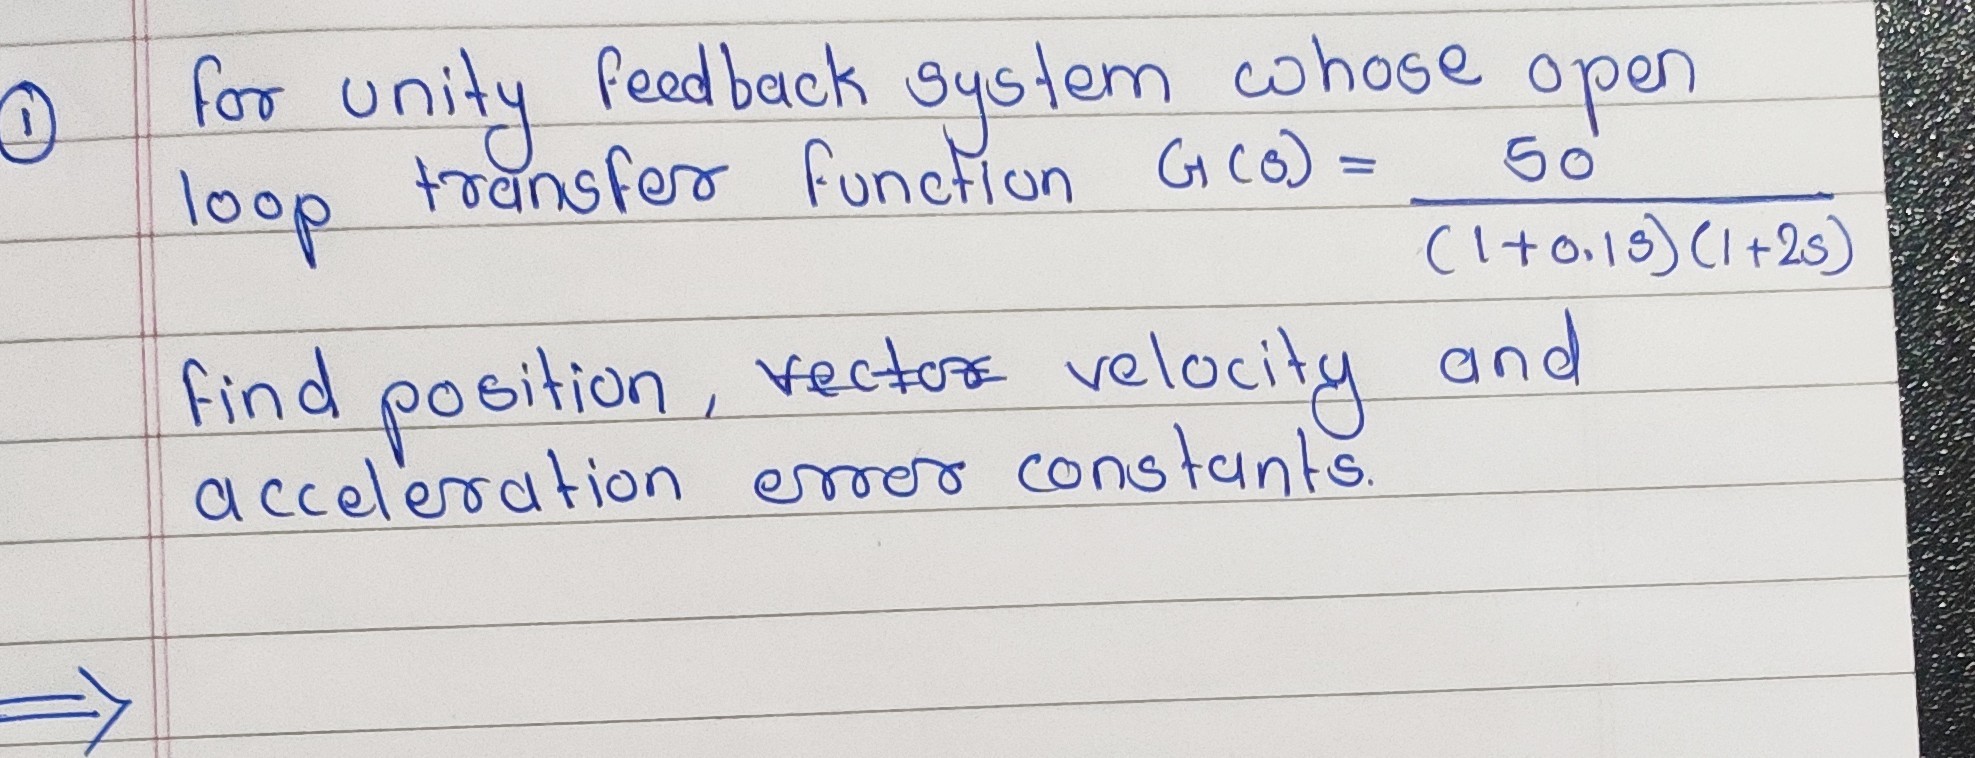 ① for unity feedback system whose open
loop transfer function G(s) = 50 / (1+0.1s)(1+2s)
find position, ~~vector~~ velocity and
acceleration error constants.
⇒